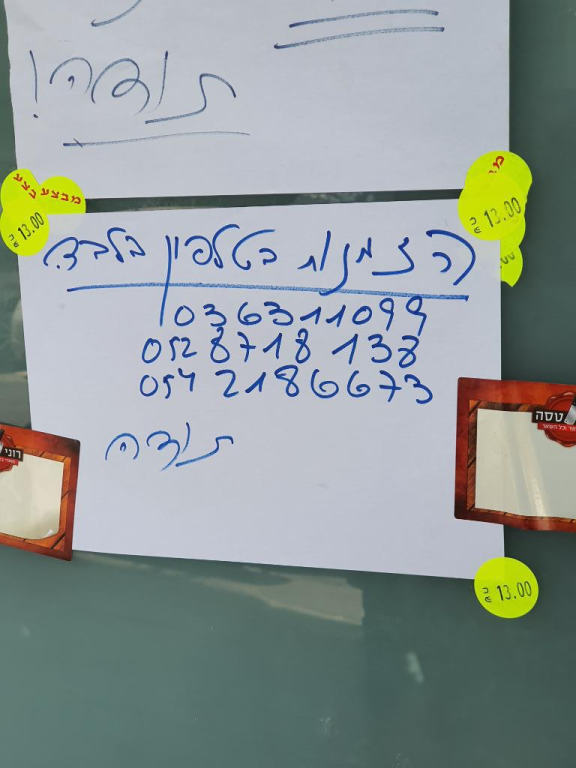 תודה!
מבצע
מבצע
13.00
13.00
הזמנות בטלפון בלבד.
036311099
0528718138
0542186673
תודה
טסה
רוני
13.00